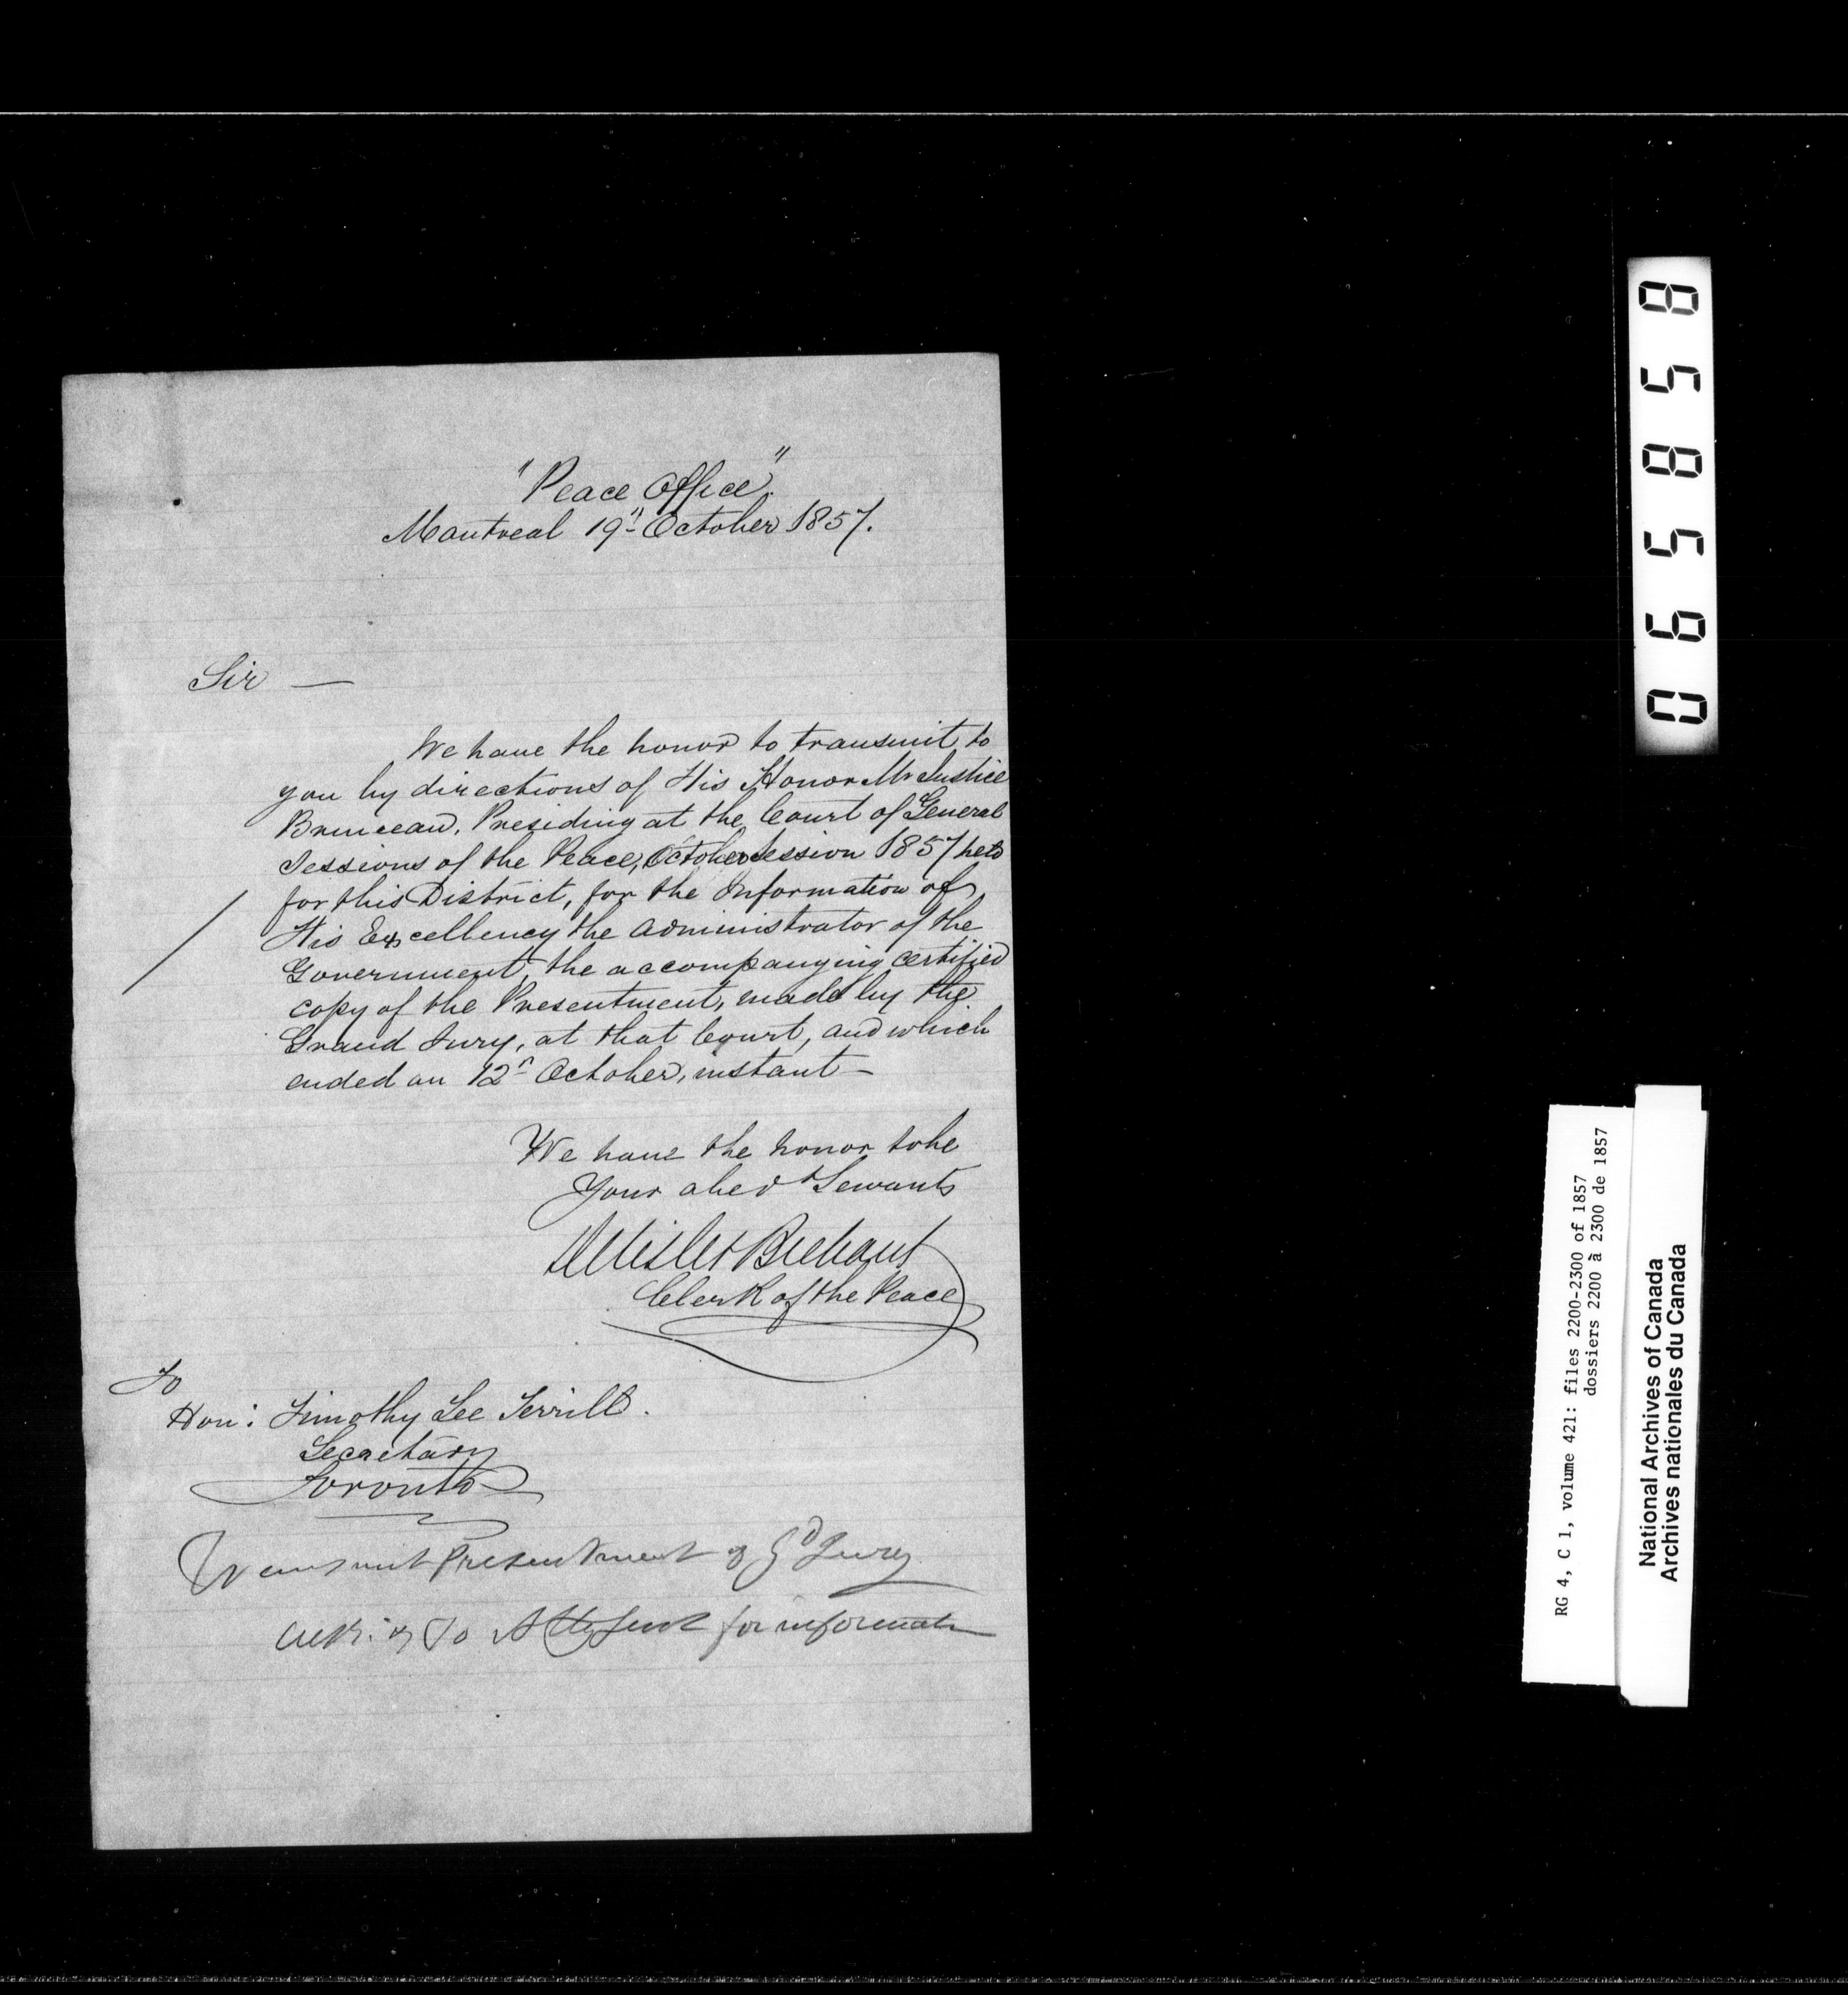 "Peace Office".
Montreal 19" October 1857.
Sir —
We have the honor to transmit to
you by directions of His Honor Mr Justice
Bruneau, Presiding at the Court of General
Sessions of the Peace, October Session 1857 held
for this District, for the Information of
His Excellency the Administrator of the
Government, the accompanying certified
copy of the Presentment, made by the
Grand Jury, at that Court, and which
ended on 12" October, instant —
We have the honor to be
Your obedt Servants
Delisle & Brehaut
Clerk of the Peace
To
Hon: Timothy Lee Terrill.
Secretary
Toronto
Transmit Presentment of Gd Jury
for information
065858
RG 4, C 1, volume 421: files 2200-2300 of 1857
dossiers 2200 à 2300 de 1857
National Archives of Canada
Archives nationales du Canada